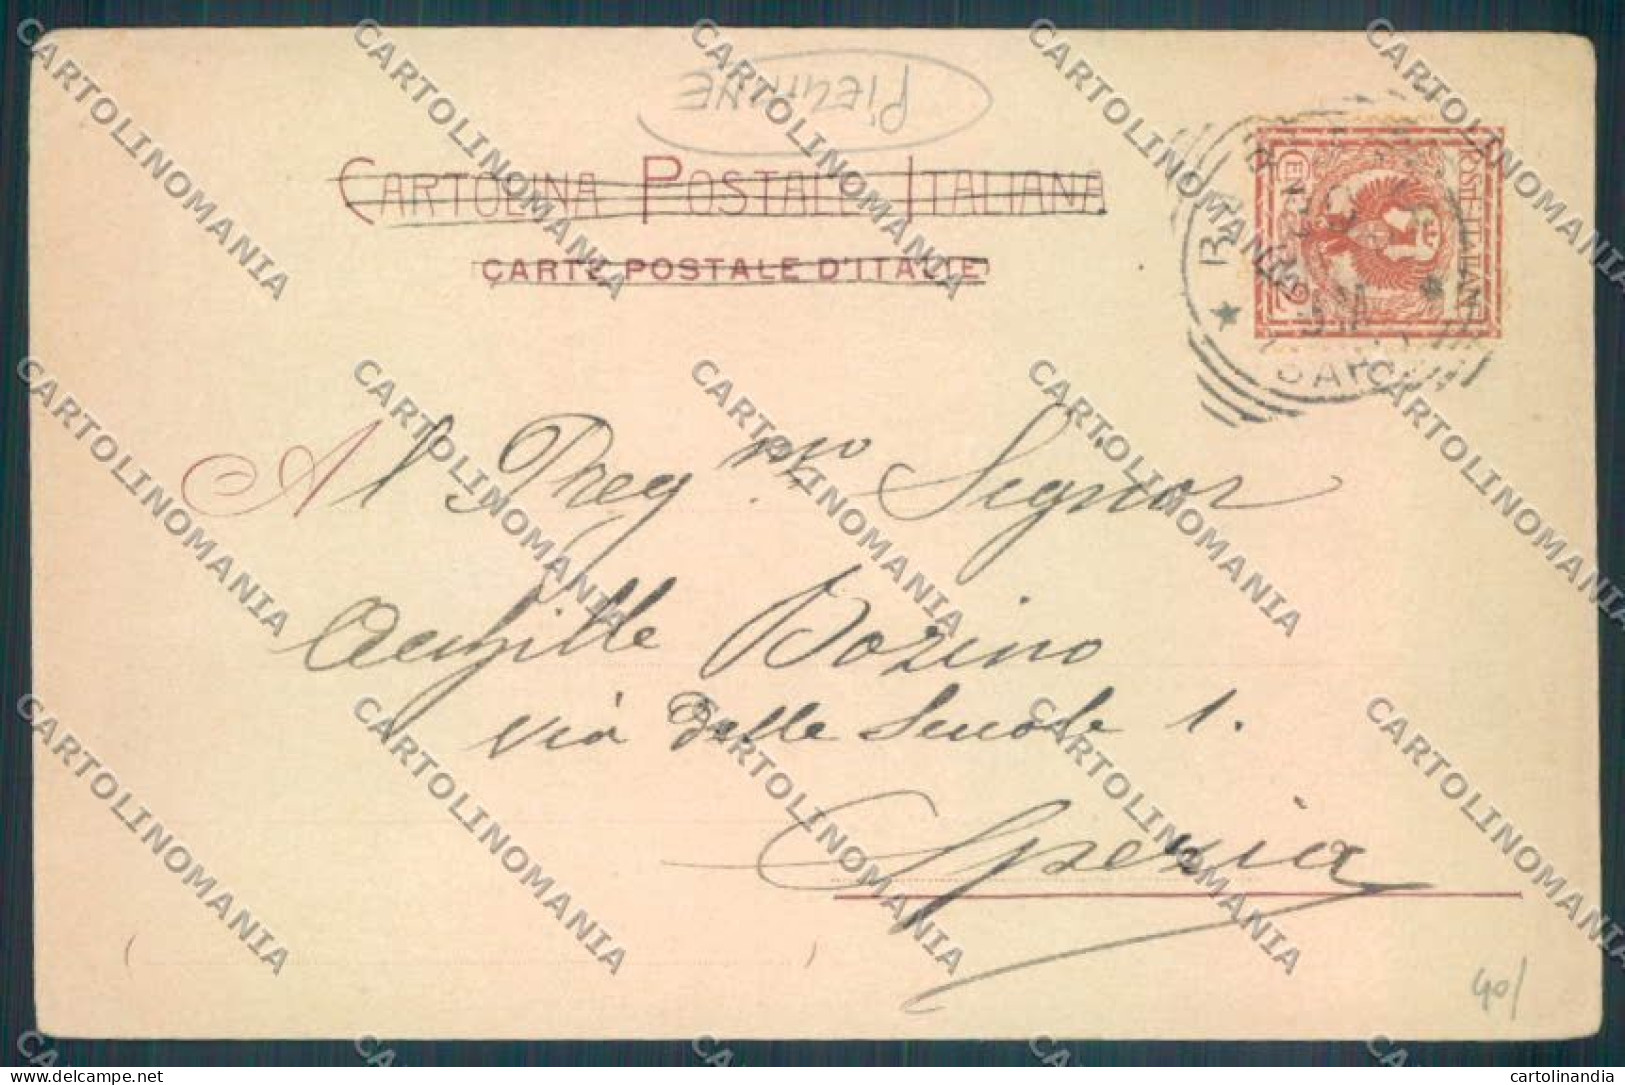 CARTOLINA POSTALE ITALIANA
CARTE POSTALE D'ITALIE
POSTE ITALIANE
Al Preg.mo Signor
Achille Bozino
Via delle Scuole 1.
Spezia
40/
CARTOLINOMANIA
delcampe.net
cartolinandia